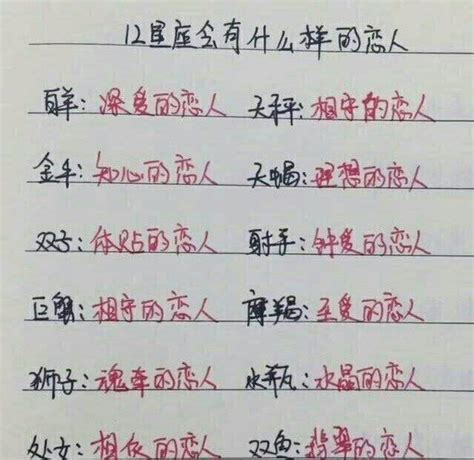 12星座会有什么样的恋人
白羊：深爱的恋人 天秤：相守的恋人
金牛：知心的恋人 天蝎：理想的恋人
双子：体贴的恋人 射手：钟爱的恋人
巨蟹：相守的恋人 摩羯：至爱的恋人
狮子：魂牵的恋人 水瓶：水晶的恋人
处女：相依的恋人 双鱼：翡翠的恋人